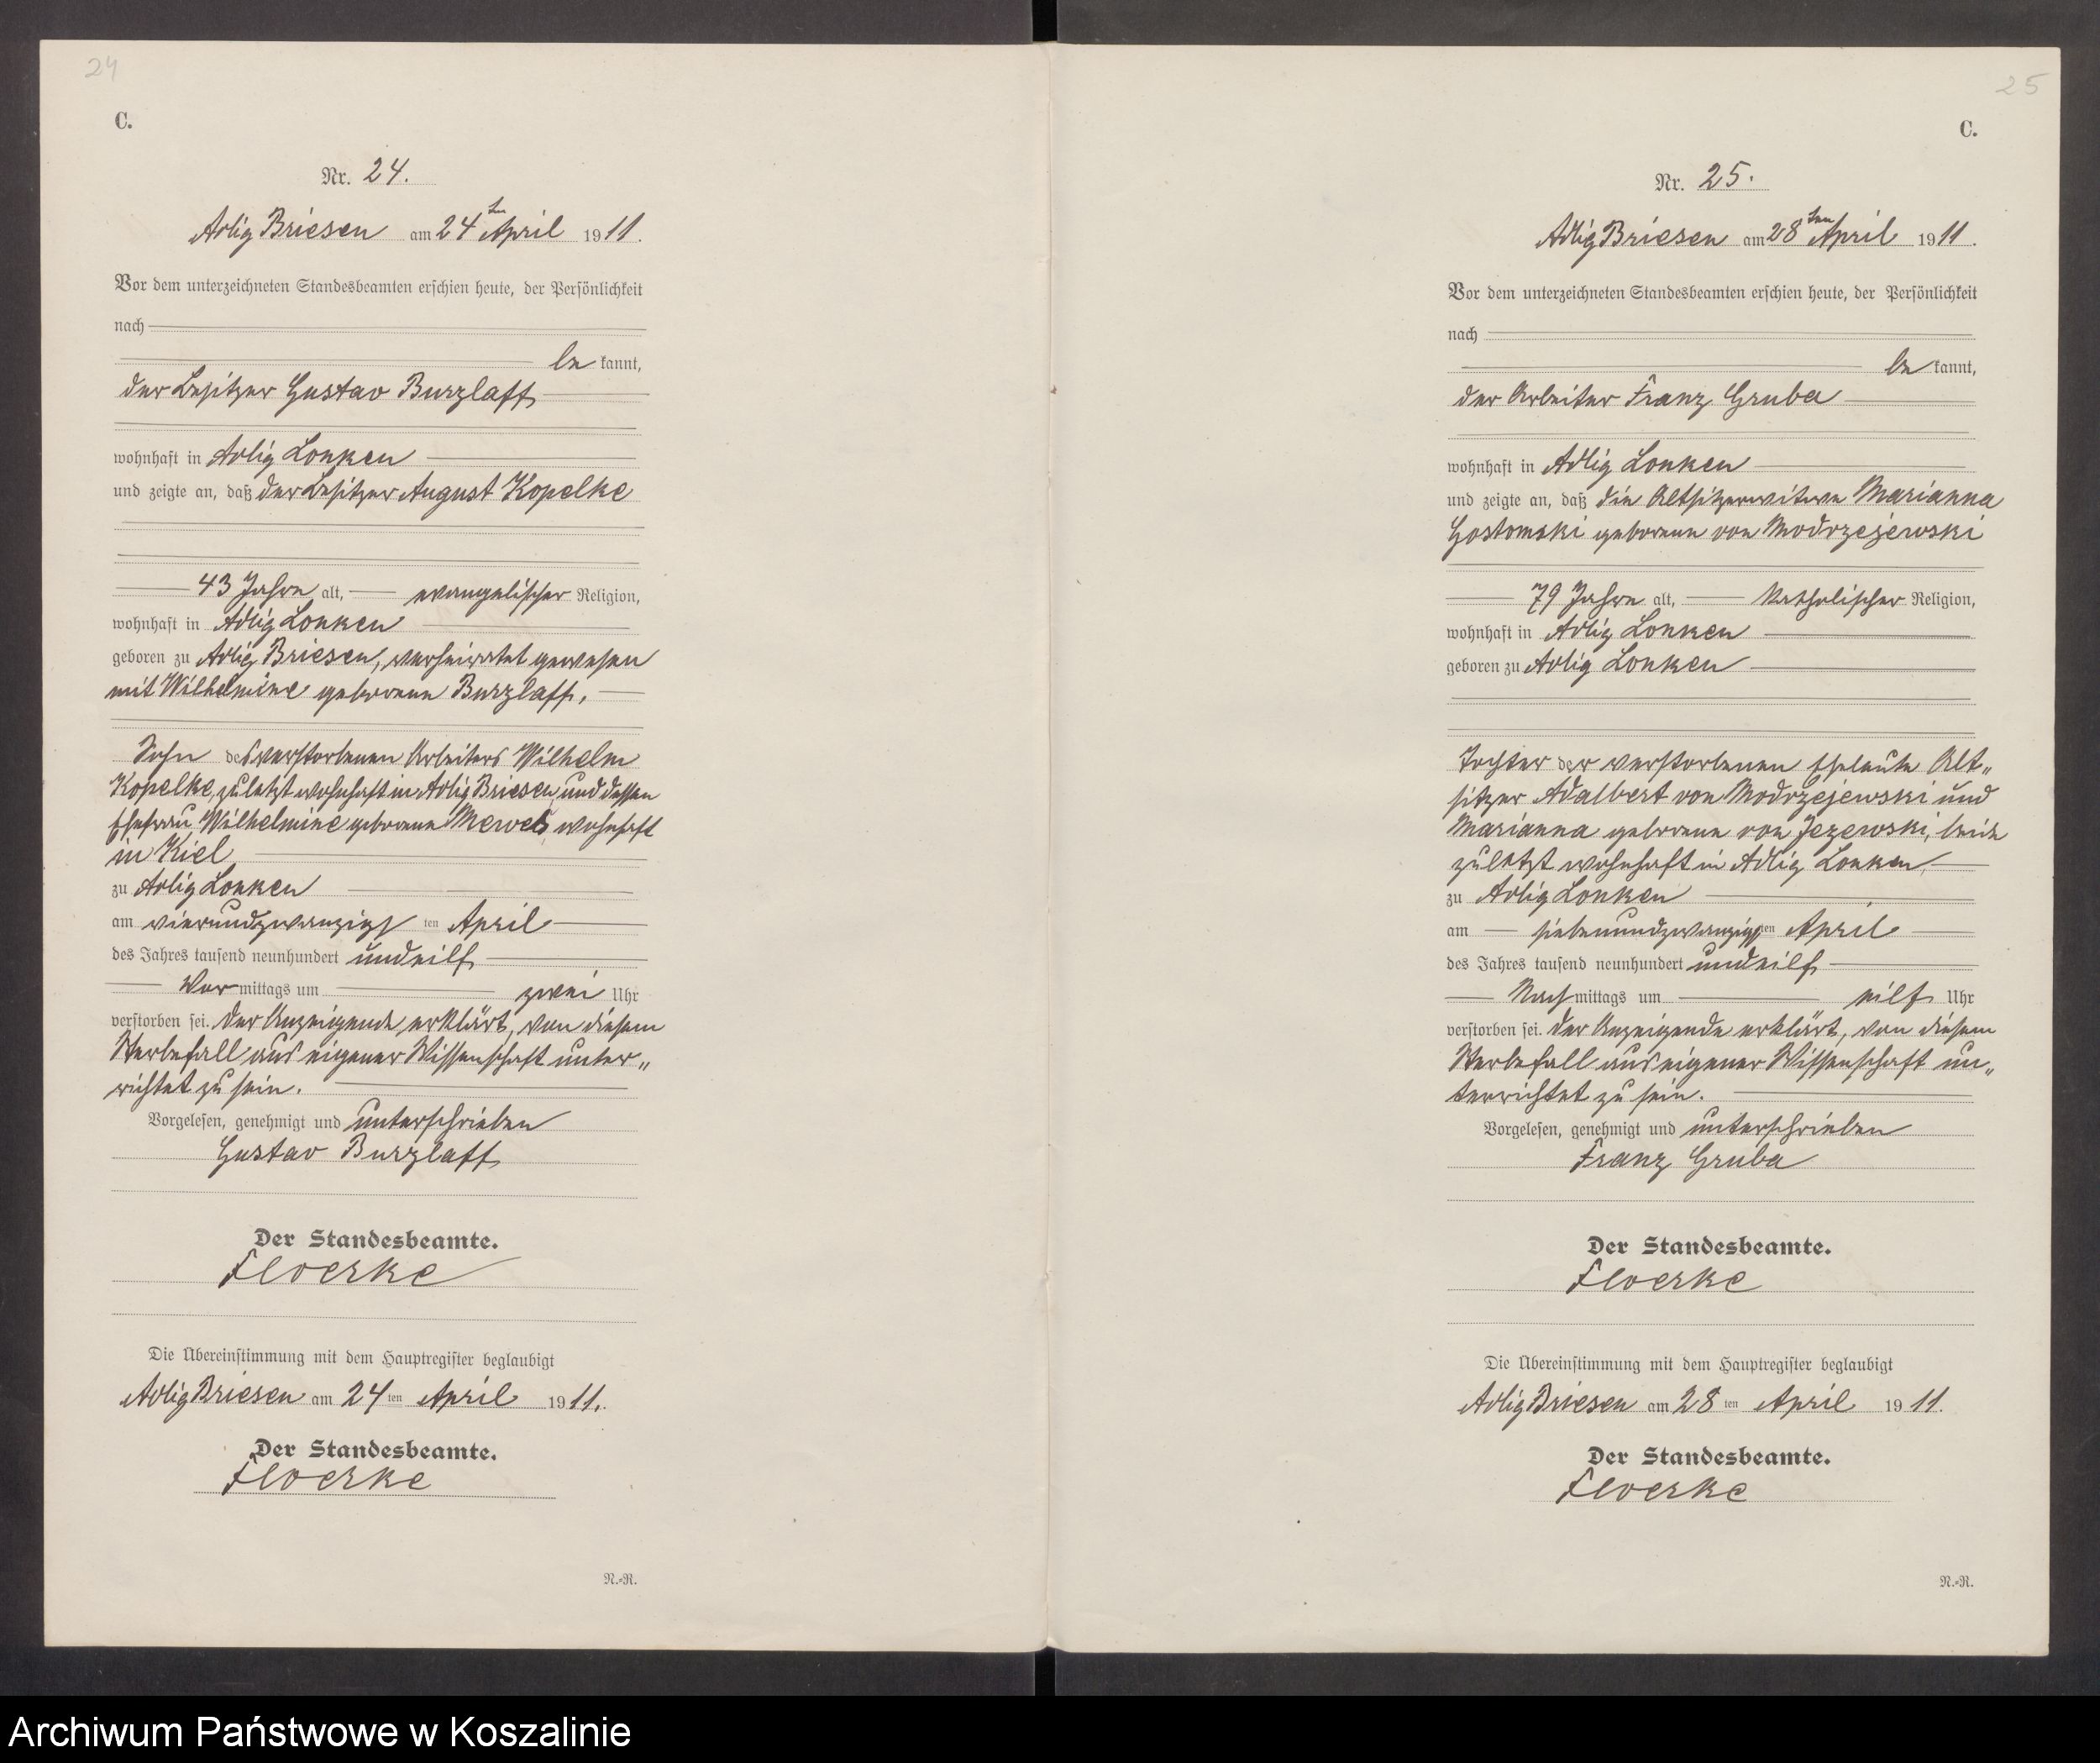 24
C.
Nr. 24.
Adlig Briesen am 24ten April 1911.
Vor dem unterzeichneten Standesbeamten erschien heute, der Persönlichkeit
nach
be kannt,
der Besitzer Gustav Burzlaff
wohnhaft in Adlig Lonken
und zeigte an, daß der Besitzer August Kopelke
43 Jahre alt, evangelischer Religion,
wohnhaft in Adlig Lonken
geboren zu Adlig Briesen, verheiratet gewesen
mit Wilhelmine geborene Burzlaff,
Sohn des verstorbenen Arbeiters Wilhelm
Kopelke, zuletzt wohnhaft in Adlig Briesen, und dessen
Ehefrau Wilhelmine geborene Mewes wohnhaft
in Kiel
zu Adlig Lonken
am vierundzwanzigsten April
des Jahres tausend neunhundert undeilf
Vormittags um zwei Uhr
verstorben sei. Der Anzeigende erklärt, von diesem
Sterbefall aus eigener Wissenschaft unter„
richtet zu sein.
Vorgelesen, genehmigt und unterschrieben
Gustav Burzlaff
Der Standesbeamte.
Floerke
Die Übereinstimmung mit dem Hauptregister beglaubigt
Adlig Briesen am 24ten April 1911.
Der Standesbeamte.
Floerke
N.=R.
25
C.
Nr. 25.
Adlig Briesen am 28ten April 1911.
Vor dem unterzeichneten Standesbeamten erschien heute, der Persönlichkeit
nach
be kannt,
der Arbeiter Franz Gruba
wohnhaft in Adlig Lonken
und zeigte an, daß die Altsitzerwitwe Marianna
Gostomski geborene von Modrzejewski
79 Jahre alt, katholischer Religion,
wohnhaft in Adlig Lonken
geboren zu Adlig Lonken
Tochter der verstorbenen Eheleute Alt„
sitzer Adalbert von Modrzejewski und
Marianna geborene von Jezewski, beide
zuletzt wohnhaft in Adlig Lonken,
zu Adlig Lonken
am siebenundzwanzigsten April
des Jahres tausend neunhundert undeilf
Nachmittags um eilf Uhr
verstorben sei. Der Anzeigende erklärt, von diesem
Sterbefall aus eigener Wissenschaft un„
terrichtet zu sein.
Vorgelesen, genehmigt und unterschrieben
Franz Gruba
Der Standesbeamte.
Floerke
Die Übereinstimmung mit dem Hauptregister beglaubigt
Adlig Briesen am 28ten April 1911.
Der Standesbeamte.
Floerke
N.=R.
Archiwum Państwowe w Koszalinie